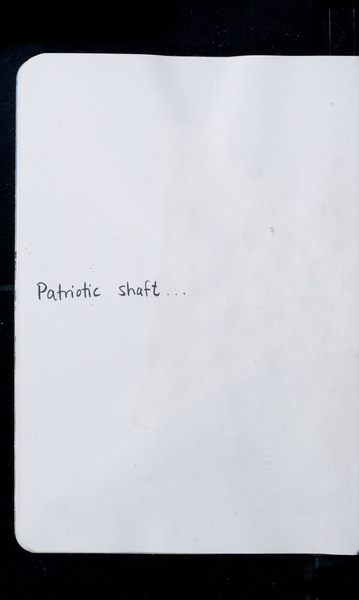 Patriotic shaft...